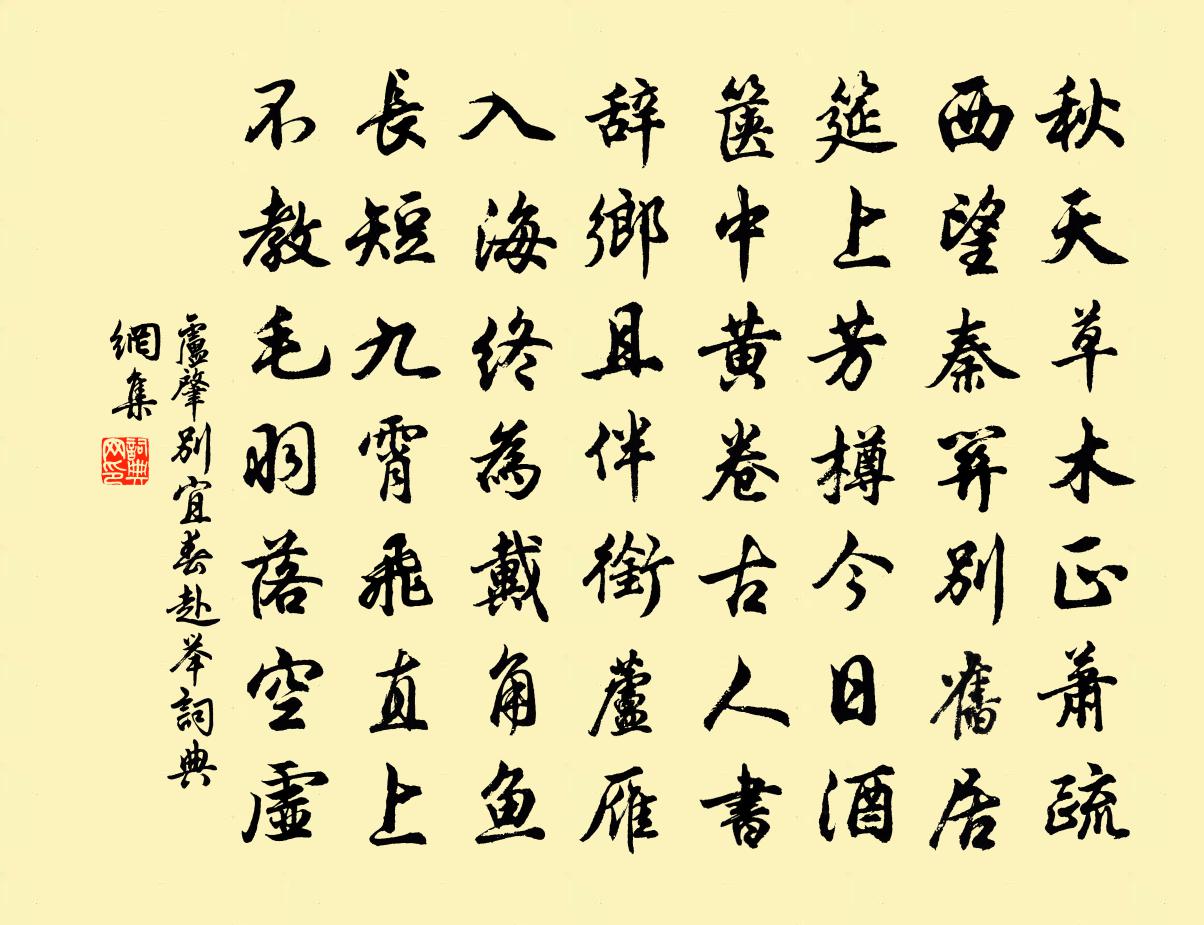 秋天草木正蕭疏
西望秦關別舊居
筵上芳樽今日酒
篋中黃卷古人書
辭鄉且伴銜蘆雁
入海終為戴角魚
長短九霄飛直上
不教毛羽落空虛
盧肇別宜春赴举詞典
網集
詞典網印